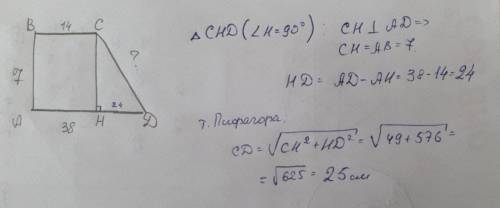 B 14 C
7
?
A 38 H 24 D
△ CHD (∠H=90°) : CH ⊥ AD =>
CH = AB = 7.
HD = AD - AH = 38 - 14 = 24
т. Пифагора.
CD = √CH² + HD² = √49 + 576 =
= √625 = 25 см